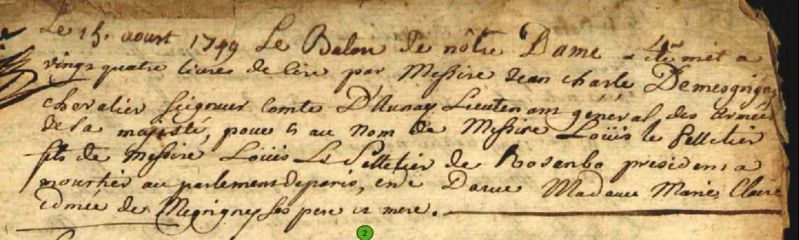 Le 15. aoust 1749 Le Baton de nôtre Dame a été mét a
vingt quatre livres de Cire par Messire Jean Charle Demesgrigny
chevalier Seigneur Comte D'Aunay Lieutenant général des Armées
de sa majesté, pour & au Nom de Messire Loüis le Pelletier
fils de Messire Loüis Le Pelletier de Rosenbo president a
mourtier au parlement de paris, et de Dame Madame Marie Claire
Edmée de Megrigny ses pere et mere.
2